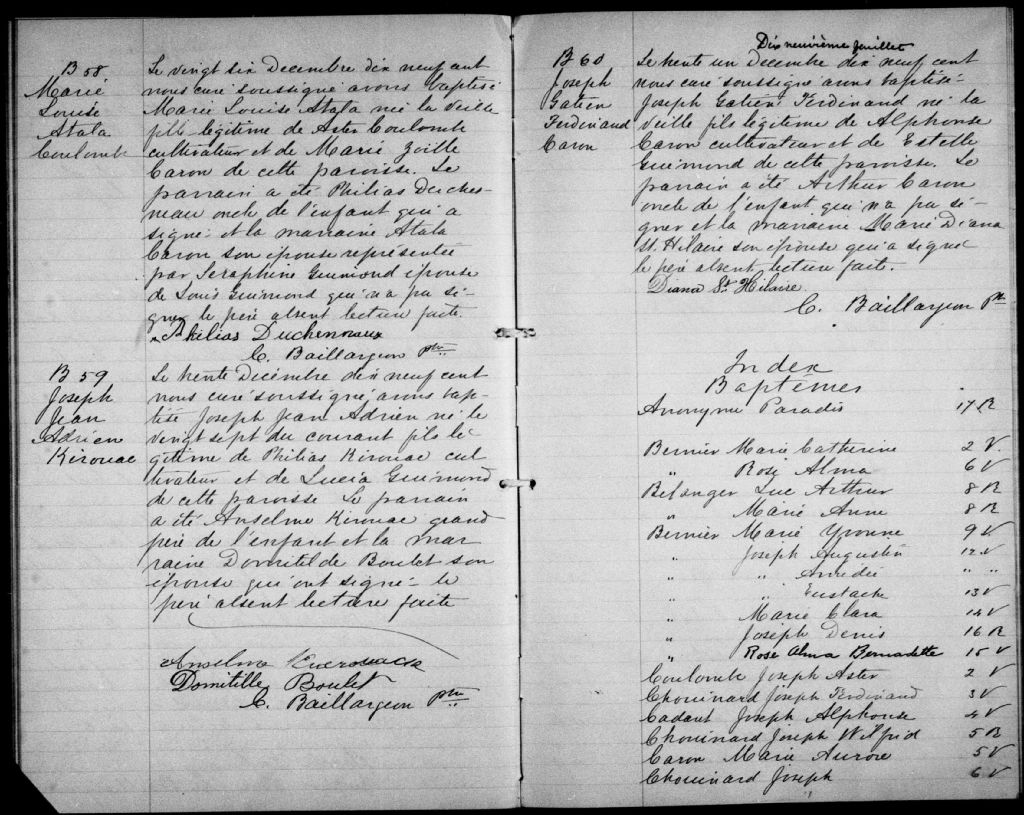 B 58
Marie
Louise
Atala
Coulombe
Le vingt six Decembre dix neuf cent
nous curé soussigné avons baptisé
Marie Louise Atala née la veille
fille légitime de Aster Coulombe
cultivateur et de Marie Zoille
Caron de cette paroisse. Le
parrain a été Philias Duches-
neau oncle de l'enfant qui a
signé et la marraine Atala
Caron son épouse représentée
par Seraphine Guimond épouse
de Louis Guimond qui n'a pu si-
gner le père absent lecture faite.
Philias Duchesneaux
C. Baillargeon Ptre
B 59
Joseph
Jean
Adrien
Kirouac
Le trente Decembre dix neuf cent
nous curé soussigné avons bap-
tisé Joseph Jean Adrien né le
vingt sept du courant fils lé-
gitime de Philias Kirouac cul-
tivateur et de Lucia Guimond
de cette paroisse Le parrain
a été Anselme Kirouac grand
père de l'enfant et la mar
raine Domitilde Boulet son
épouse qui ont signé le
père absent lecture faite
Anselme
Domitille Boulet
C. Baillargeon Ptre
Dix neuvième feuillet
B 60
Joseph
Gatien
Ferdinand
Caron
Le trente un Decembre dix neuf cent
nous curé soussigné avons baptisé
Joseph Gatien Ferdinand né la
veille fils légitime de Alphonse
Caron cultivateur et de Estelle
Guimond de cette paroisse. Le
parrain a été Arthur Caron
oncle de l'enfant qui n'a pu si-
gner et la marraine Marie Diana
St. Hilaire son épouse qui a signé
le père absent lecture faite.
Diana St Hilaire
C. Baillargeon Ptre
Index
Baptêmes
Anonyme Paradis 17 R
Bernier Marie Catherine 2 V.
" Rose Alma 6 V
Belanger Luc Arthur 8 R
" Marie Anne 8 R
Bernier Marie Yvonne 9 V
" Joseph Augustin 12 V
" " Amedée " "
" " Eustache 13 V
" Marie Clara 14 V
" Joseph Denis 16 R
" Rose Alma Bernadette 15 V
Coulombe Joseph Aster 2 V
Chouinard Joseph Ferdinand 3 V
Cadant Joseph Alphonse 4 V
Chouinard Joseph Wilfrid 5 R
Caron Marie Aurore 5 V
Chouinard Joseph 6 V